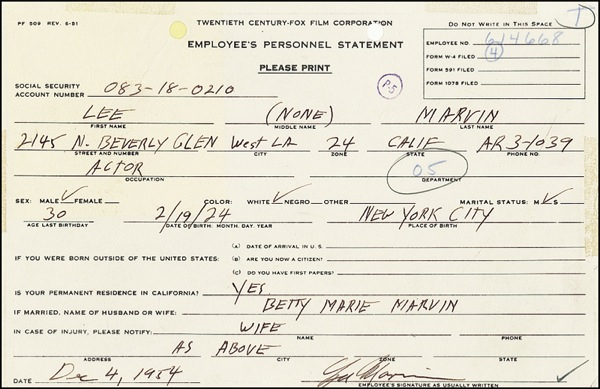 PF 509 REV. 6-51
TWENTIETH CENTURY-FOX FILM CORPORATION
DO NOT WRITE IN THIS SPACE
T
EMPLOYEE'S PERSONNEL STATEMENT
EMPLOYEE NO. 614668
PLEASE PRINT
FORM W-4 FILED 4
FORM 591 FILED
FORM 1078 FILED
P-5
SOCIAL SECURITY
ACCOUNT NUMBER 083-18-0210
LEE (NONE) MARVIN
FIRST NAME MIDDLE NAME LAST NAME
2145 N. BEVERLY GLEN West LA 24 CALIF AR 3-1039
STREET AND NUMBER CITY ZONE STATE PHONE NO.
ACTOR 05
OCCUPATION DEPARTMENT
SEX: MALE ✓ FEMALE COLOR: WHITE ✓ NEGRO OTHER MARITAL STATUS: M ✓ S
30 2/19/24 NEW YORK CITY
AGE LAST BIRTHDAY DATE OF BIRTH: MONTH. DAY. YEAR PLACE OF BIRTH
(A) DATE OF ARRIVAL IN U.S.
IF YOU WERE BORN OUTSIDE OF THE UNITED STATES: (B) ARE YOU NOW A CITIZEN?
(C) DO YOU HAVE FIRST PAPERS?
IS YOUR PERMANENT RESIDENCE IN CALIFORNIA? YES
IF MARRIED, NAME OF HUSBAND OR WIFE: BETTY MARIE MARVIN
IN CASE OF INJURY, PLEASE NOTIFY: WIFE
NAME PHONE
AS ABOVE
ADDRESS CITY ZONE STATE
DATE Dec 4, 1954 Lee Marvin ✓
EMPLOYEE'S SIGNATURE AS USUALLY WRITTEN